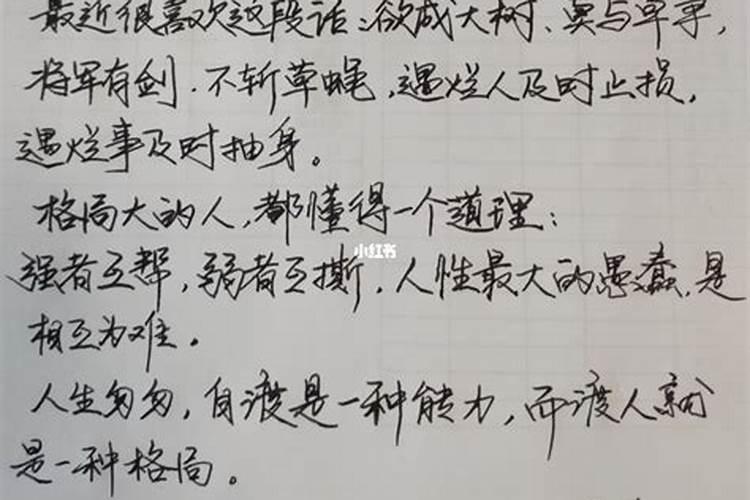 最近很喜欢这段话：欲成大树、莫与草争，
将军有剑．不斩草蝇，遇烂人及时止损，
遇烂事及时抽身。
格局大的人，都懂得一个道理：
小红书
强者互帮，弱者互撕，人性最大的愚蠢，是
相互为难。
人生匆匆，自渡是一种能力，而渡人就
是一种格局。